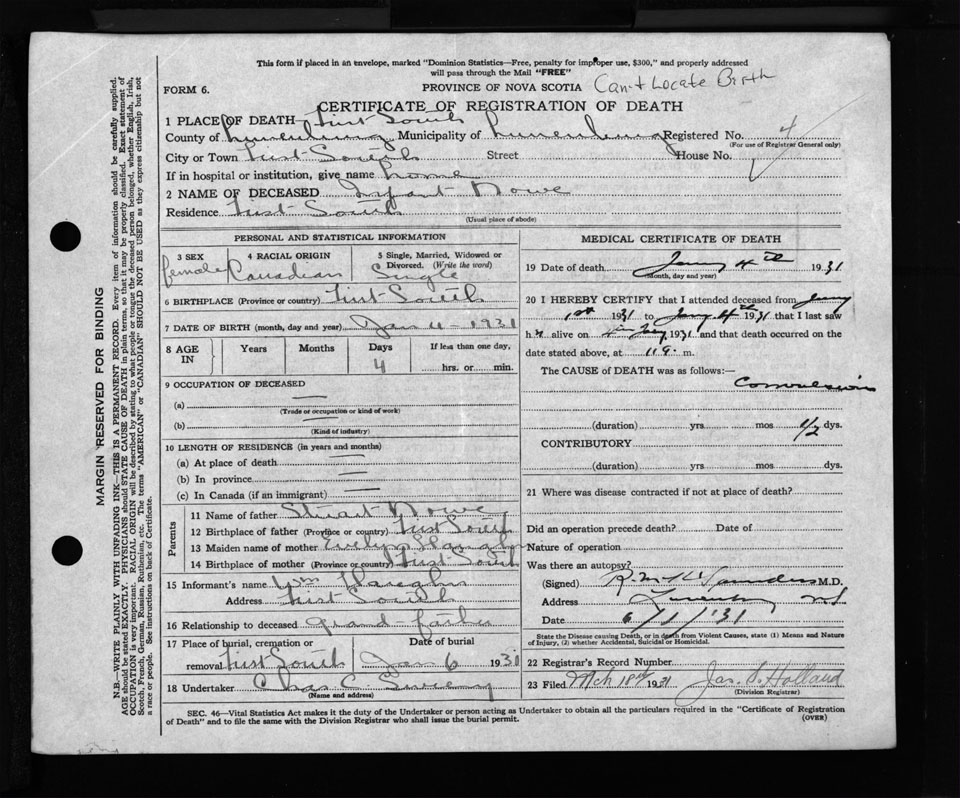 This form if placed in an envelope, marked "Dominion Statistics—Free, penalty for improper use, $300," and properly addressed
will pass through the Mail "FREE"
FORM 6.
PROVINCE OF NOVA SCOTIA Can't Locate Birth
CERTIFICATE OF REGISTRATION OF DEATH
1 PLACE OF DEATH First South
County of Lunenburg Municipality of Lunenburg Registered No. 4
(For use of Registrar General only)
City or Town First South Street House No.
If in hospital or institution, give name home
2 NAME OF DECEASED Infant Nowe
Residence First South
(Usual place of abode)
PERSONAL AND STATISTICAL INFORMATION
3 SEX 4 RACIAL ORIGIN 5 Single, Married, Widowed or
Divorced. (Write the word)
female Canadian Single
6 BIRTHPLACE (Province or country) First South
7 DATE OF BIRTH (month, day and year) Jan 4 - 1931
8 AGE IN Years Months Days If less than one day,
4 hrs. or min.
9 OCCUPATION OF DECEASED
(a)
(Trade or occupation or kind of work)
(b)
(Kind of industry)
10 LENGTH OF RESIDENCE (in years and months)
(a) At place of death
(b) In province
(c) In Canada (if an immigrant)
Parents
11 Name of father Stuart Nowe
12 Birthplace of father (Province or country) First South
13 Maiden name of mother Evelyn
14 Birthplace of mother (Province or country) First South
15 Informant's name Wm
Address First South
16 Relationship to deceased grand-father
17 Place of burial, cremation or Date of burial
removal First South Jan 6 1931
18 Undertaker Chas C.
(Name and address)
MEDICAL CERTIFICATE OF DEATH
19 Date of death Jany 4th 1931
(Month, day and year)
20 I HEREBY CERTIFY that I attended deceased from Jany
1st 1931 to Jany 4th 1931 that I last saw
h alive on Jany 1931 and that death occurred on the
date stated above, at m.
The CAUSE of DEATH was as follows:—
Convulsions
(duration) yrs mos 1/2 dys.
CONTRIBUTORY
(duration) yrs mos dys.
21 Where was disease contracted if not at place of death?
Did an operation precede death? Date of
Nature of operation
Was there an autopsy?
(Signed) Saunders M.D.
Address Lunenburg N.S.
Date 6/1/'31
State the Disease causing Death, or in death from Violent Causes, state (1) Means and Nature
of Injury, (2) whether Accidental, Suicidal or Homicidal.
22 Registrar's Record Number
23 Filed Mch 18th 1931 Jas. S. Holland
(Division Registrar)
SEC. 46—Vital Statistics Act makes it the duty of the Undertaker or person acting as Undertaker to obtain all the particulars required in the "Certificate of Registration
of Death" and to file the same with the Division Registrar who shall issue the burial permit.
(OVER)
MARGIN RESERVED FOR BINDING
N.B.—WRITE PLAINLY WITH UNFADING INK—THIS IS A PERMANENT RECORD. Every item of information should be carefully supplied.
AGE should be stated EXACTLY. PHYSICIANS should STATE CAUSE OF DEATH in plain terms, so that it may be properly classified. Exact statement of
OCCUPATION is very important. RACIAL ORIGIN will be described by stating to what people or tongue the deceased person belonged, whether English, Irish,
Scotch, French, German, Russian, Ruthenian, etc. The terms "AMERICAN" or "CANADIAN" SHOULD NOT BE USED as they express citizenship but not
a race or people. See instructions on back of Certificate.